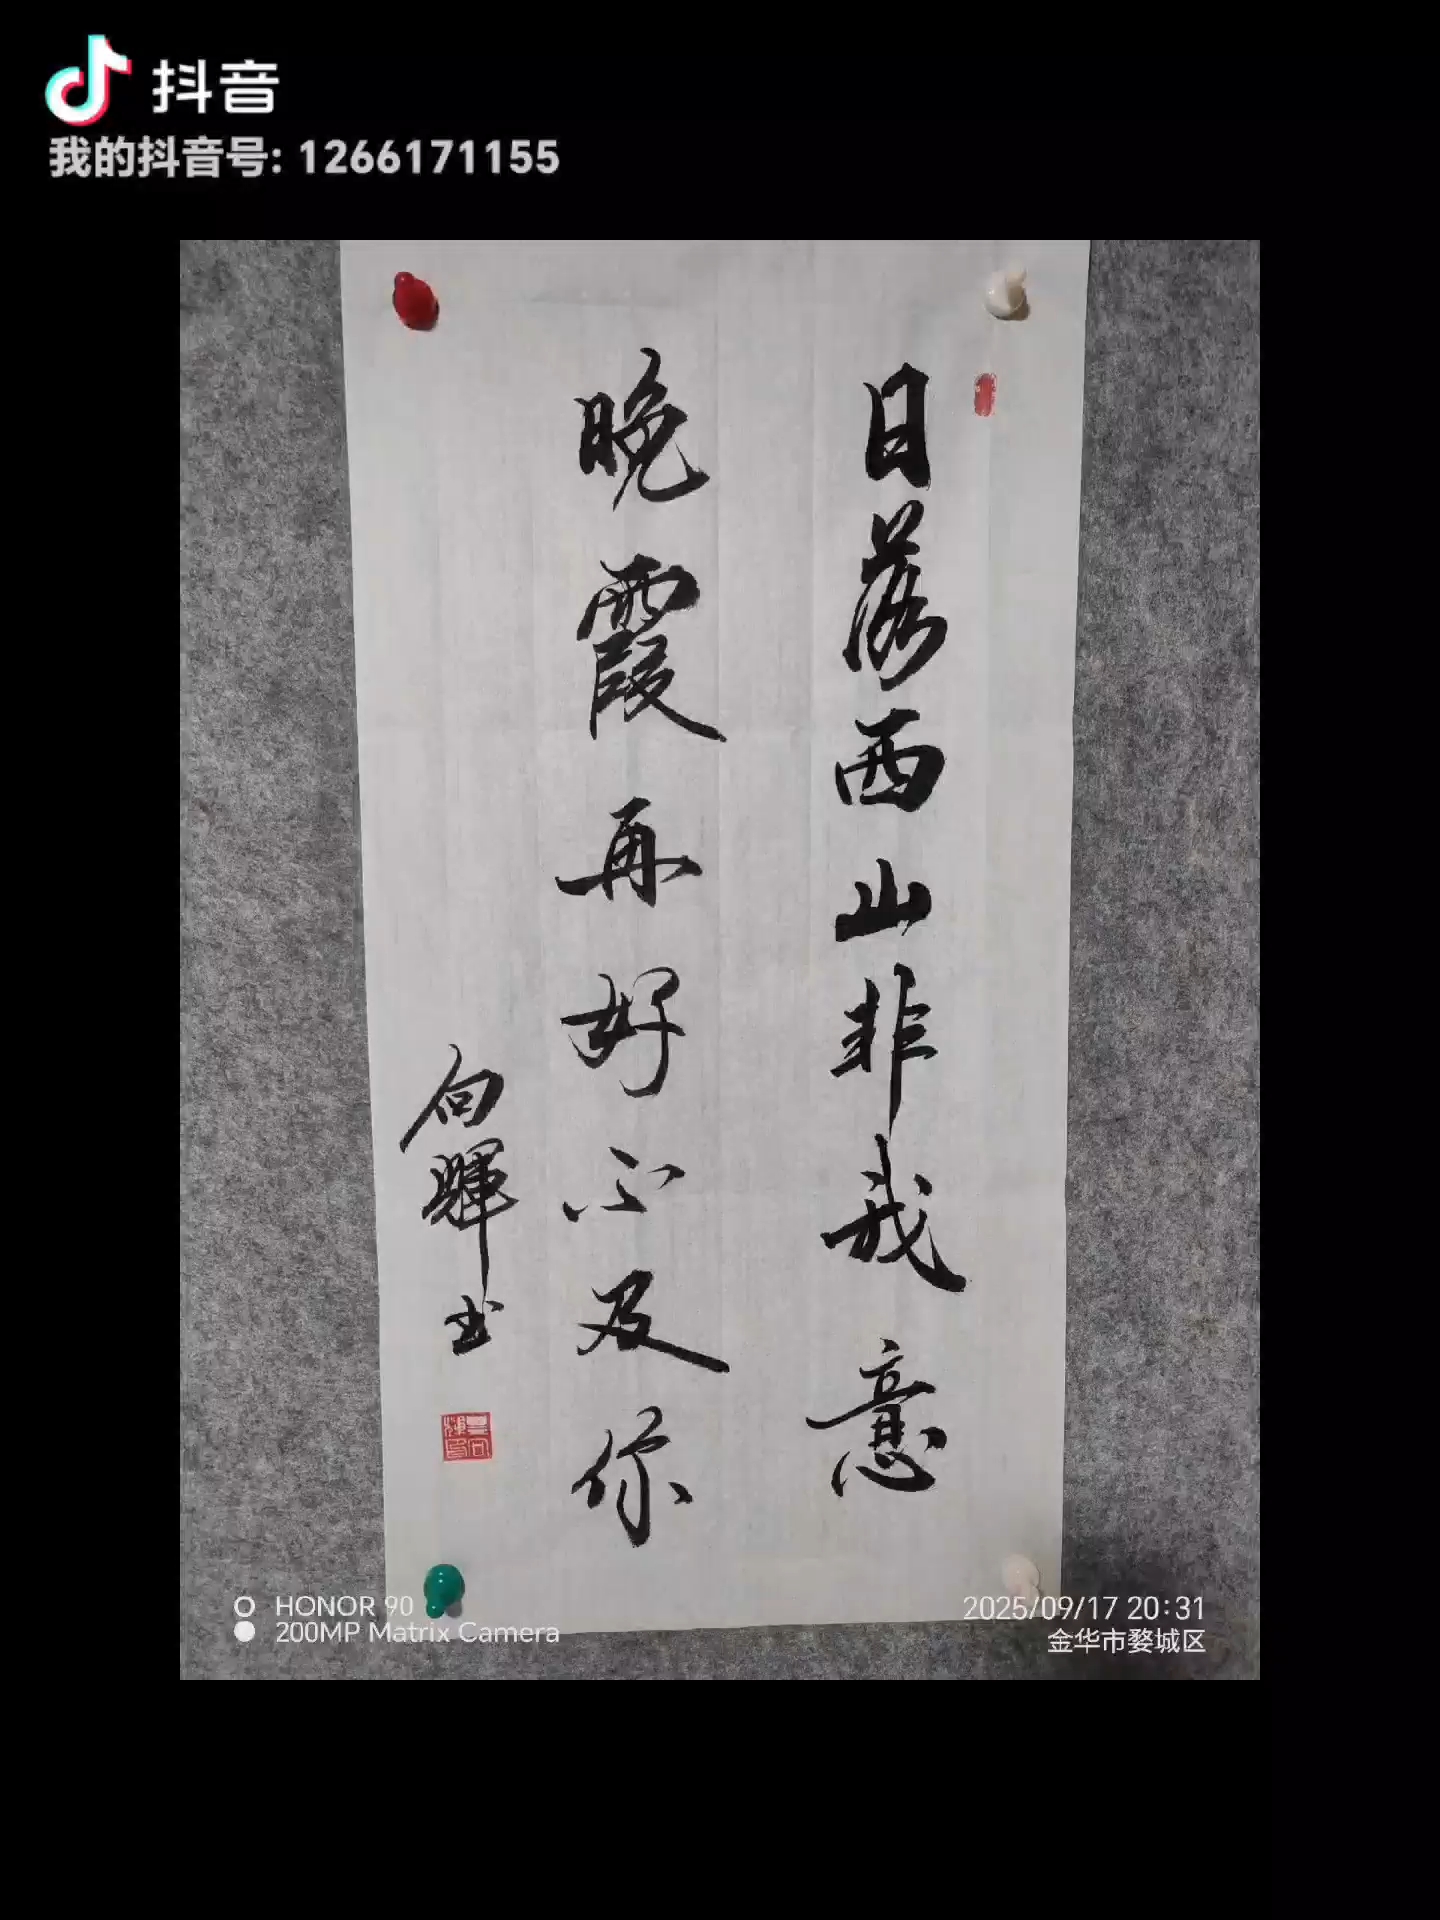 抖音
我的抖音号: 1266171155
日落西山非我意
晚霞再好不及你
向晖书
HONOR 90
200MP Matrix Camera
2025/09/17 20:31
金华市婺城区